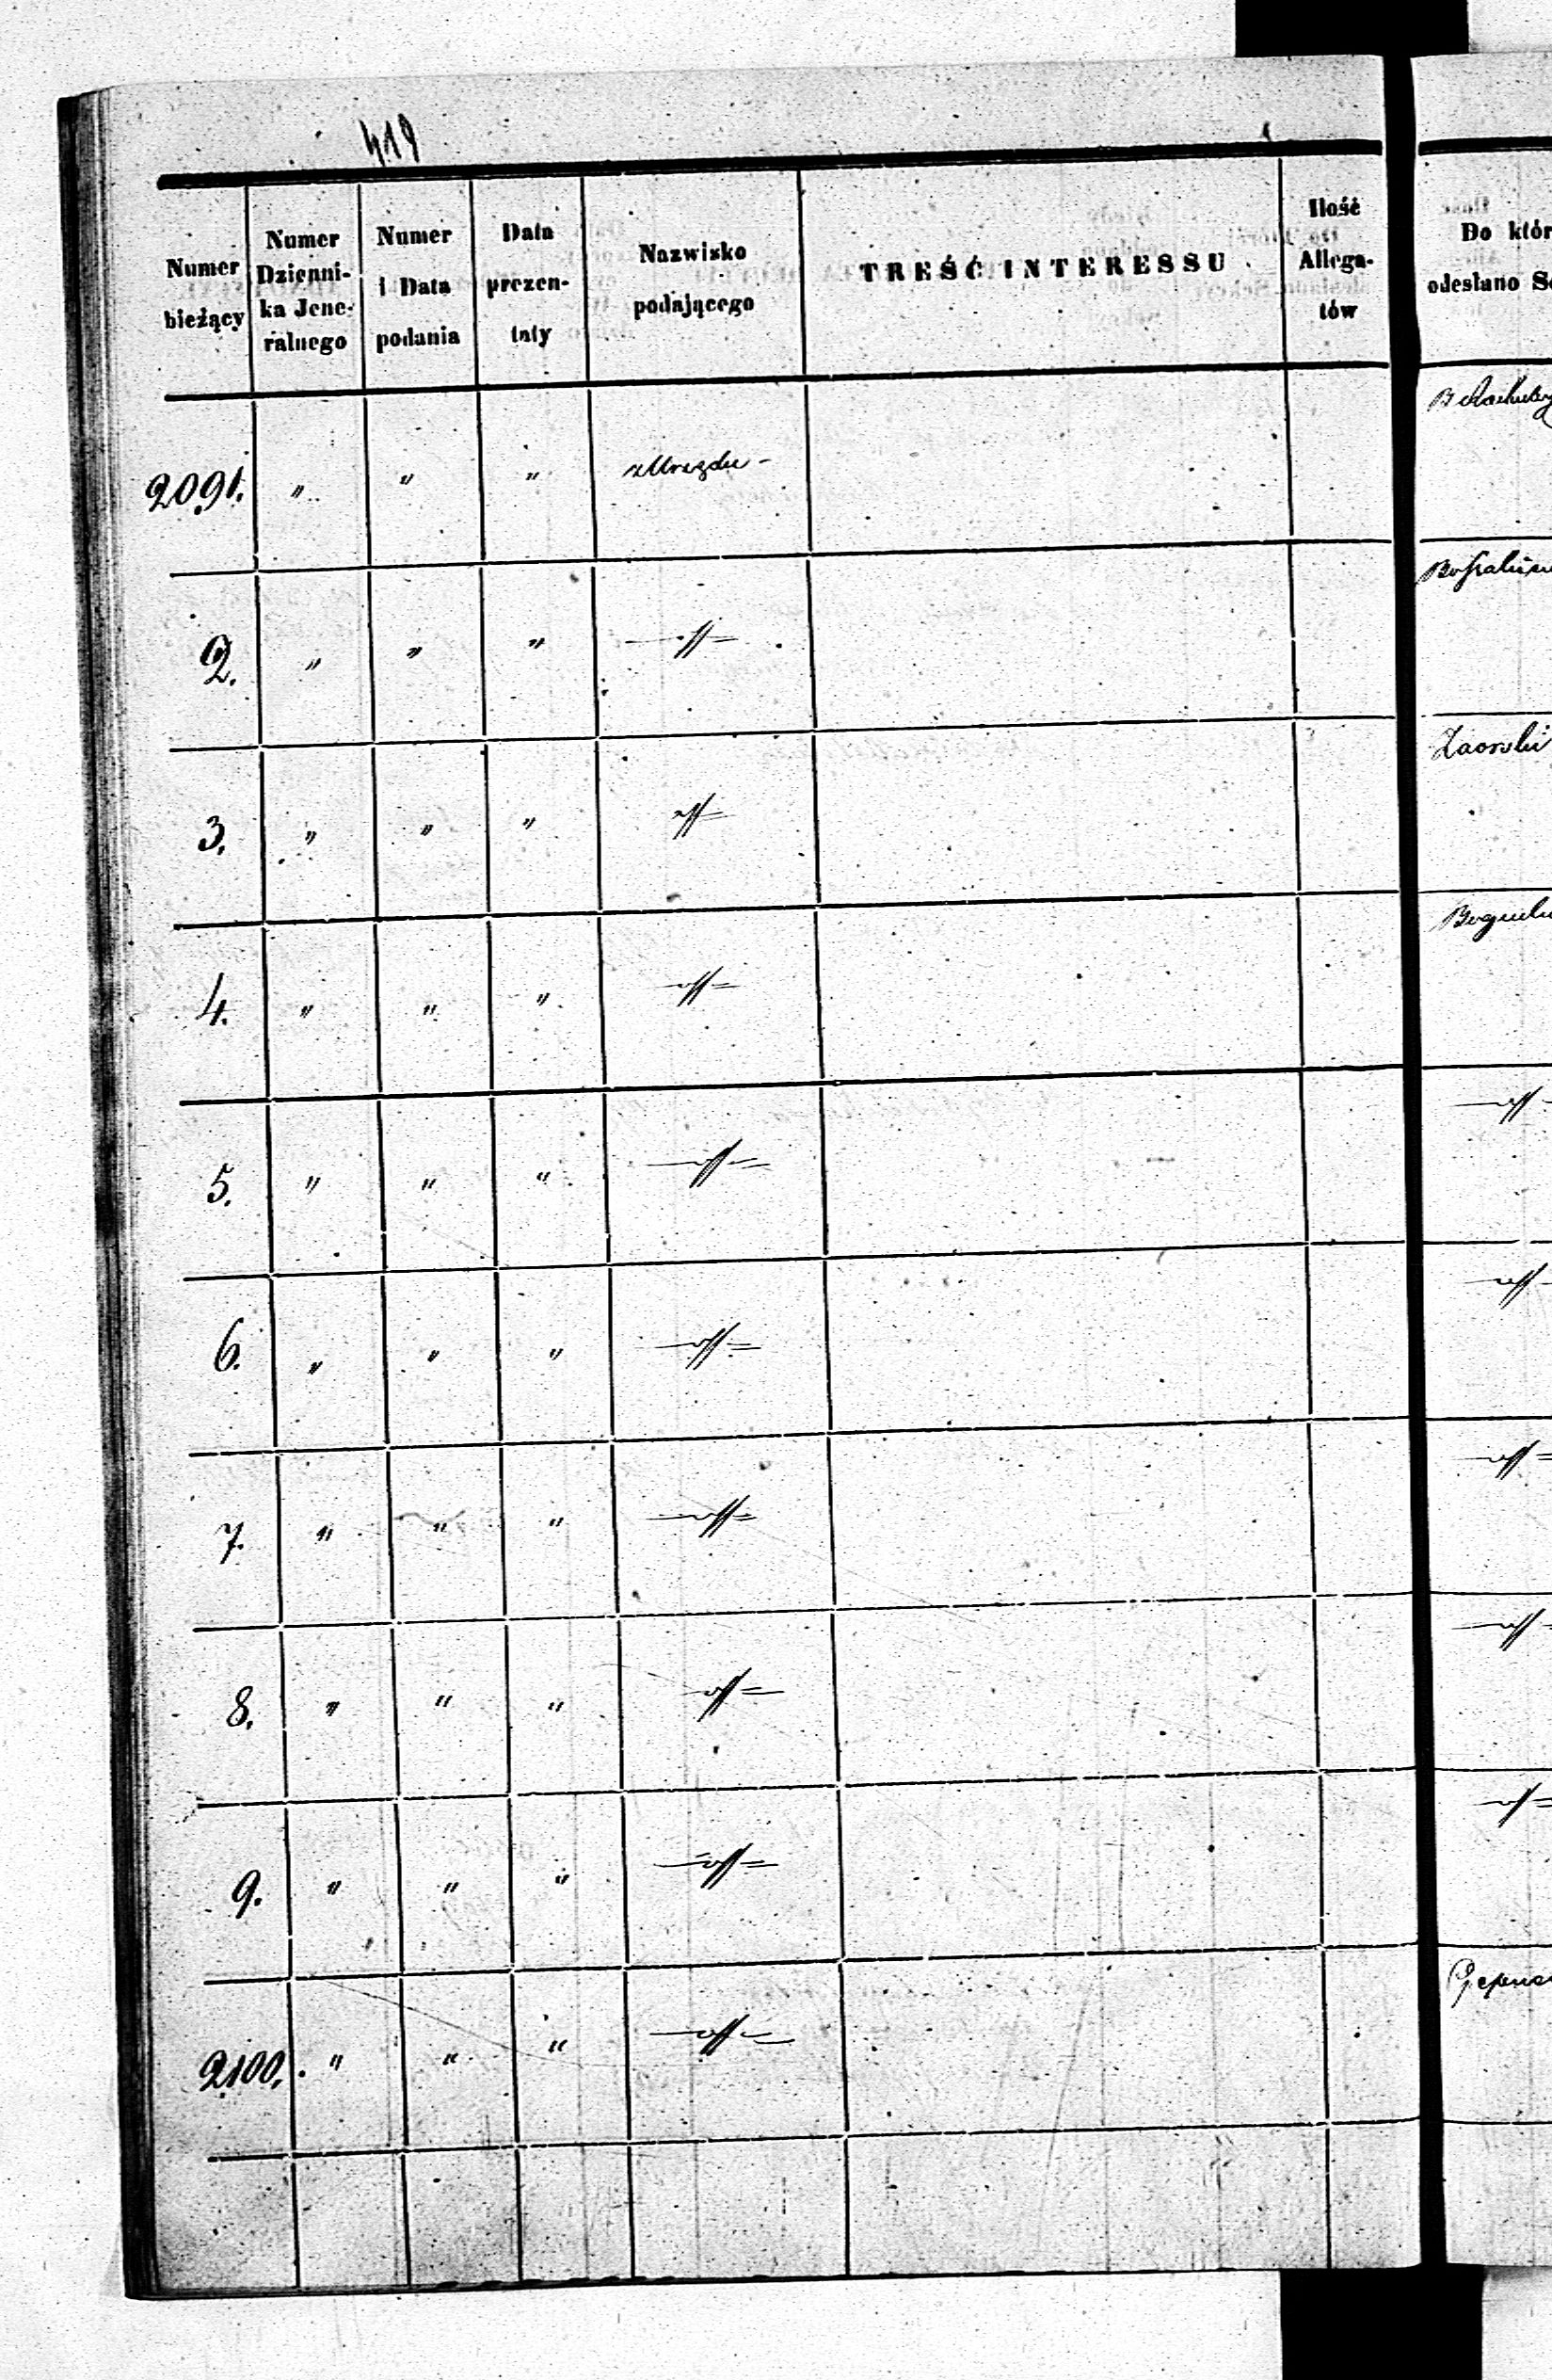 419
Numer bieżący | Numer Dzienni-ka Jene-ralnego | Numer i Data podania | Data prezen-taty | Nazwisko podającego | TREŚĆ INTERESSU | Ilość Allega-tów | Do któr odesłano Se
2091. " " " z Urzędu -
2. " " "
3. " " "
4. " " "
5. " " "
6. " " "
7. " " "
8. " " "
9. " " "
2100. " " "
Zaorski